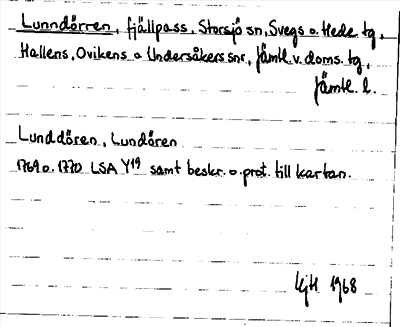 Lunndörren, fjällpass, Storsjö sn, Svegs o. Hede tg,
Hallens, Ovikens o Undersåkers snr, Jämtl. v. doms. tg,
Jämtl. l.
Lunddören, Lundören
1769 o. 1770 LSA Y19 samt beskr. o. prot. till kartan.
KjH 1968